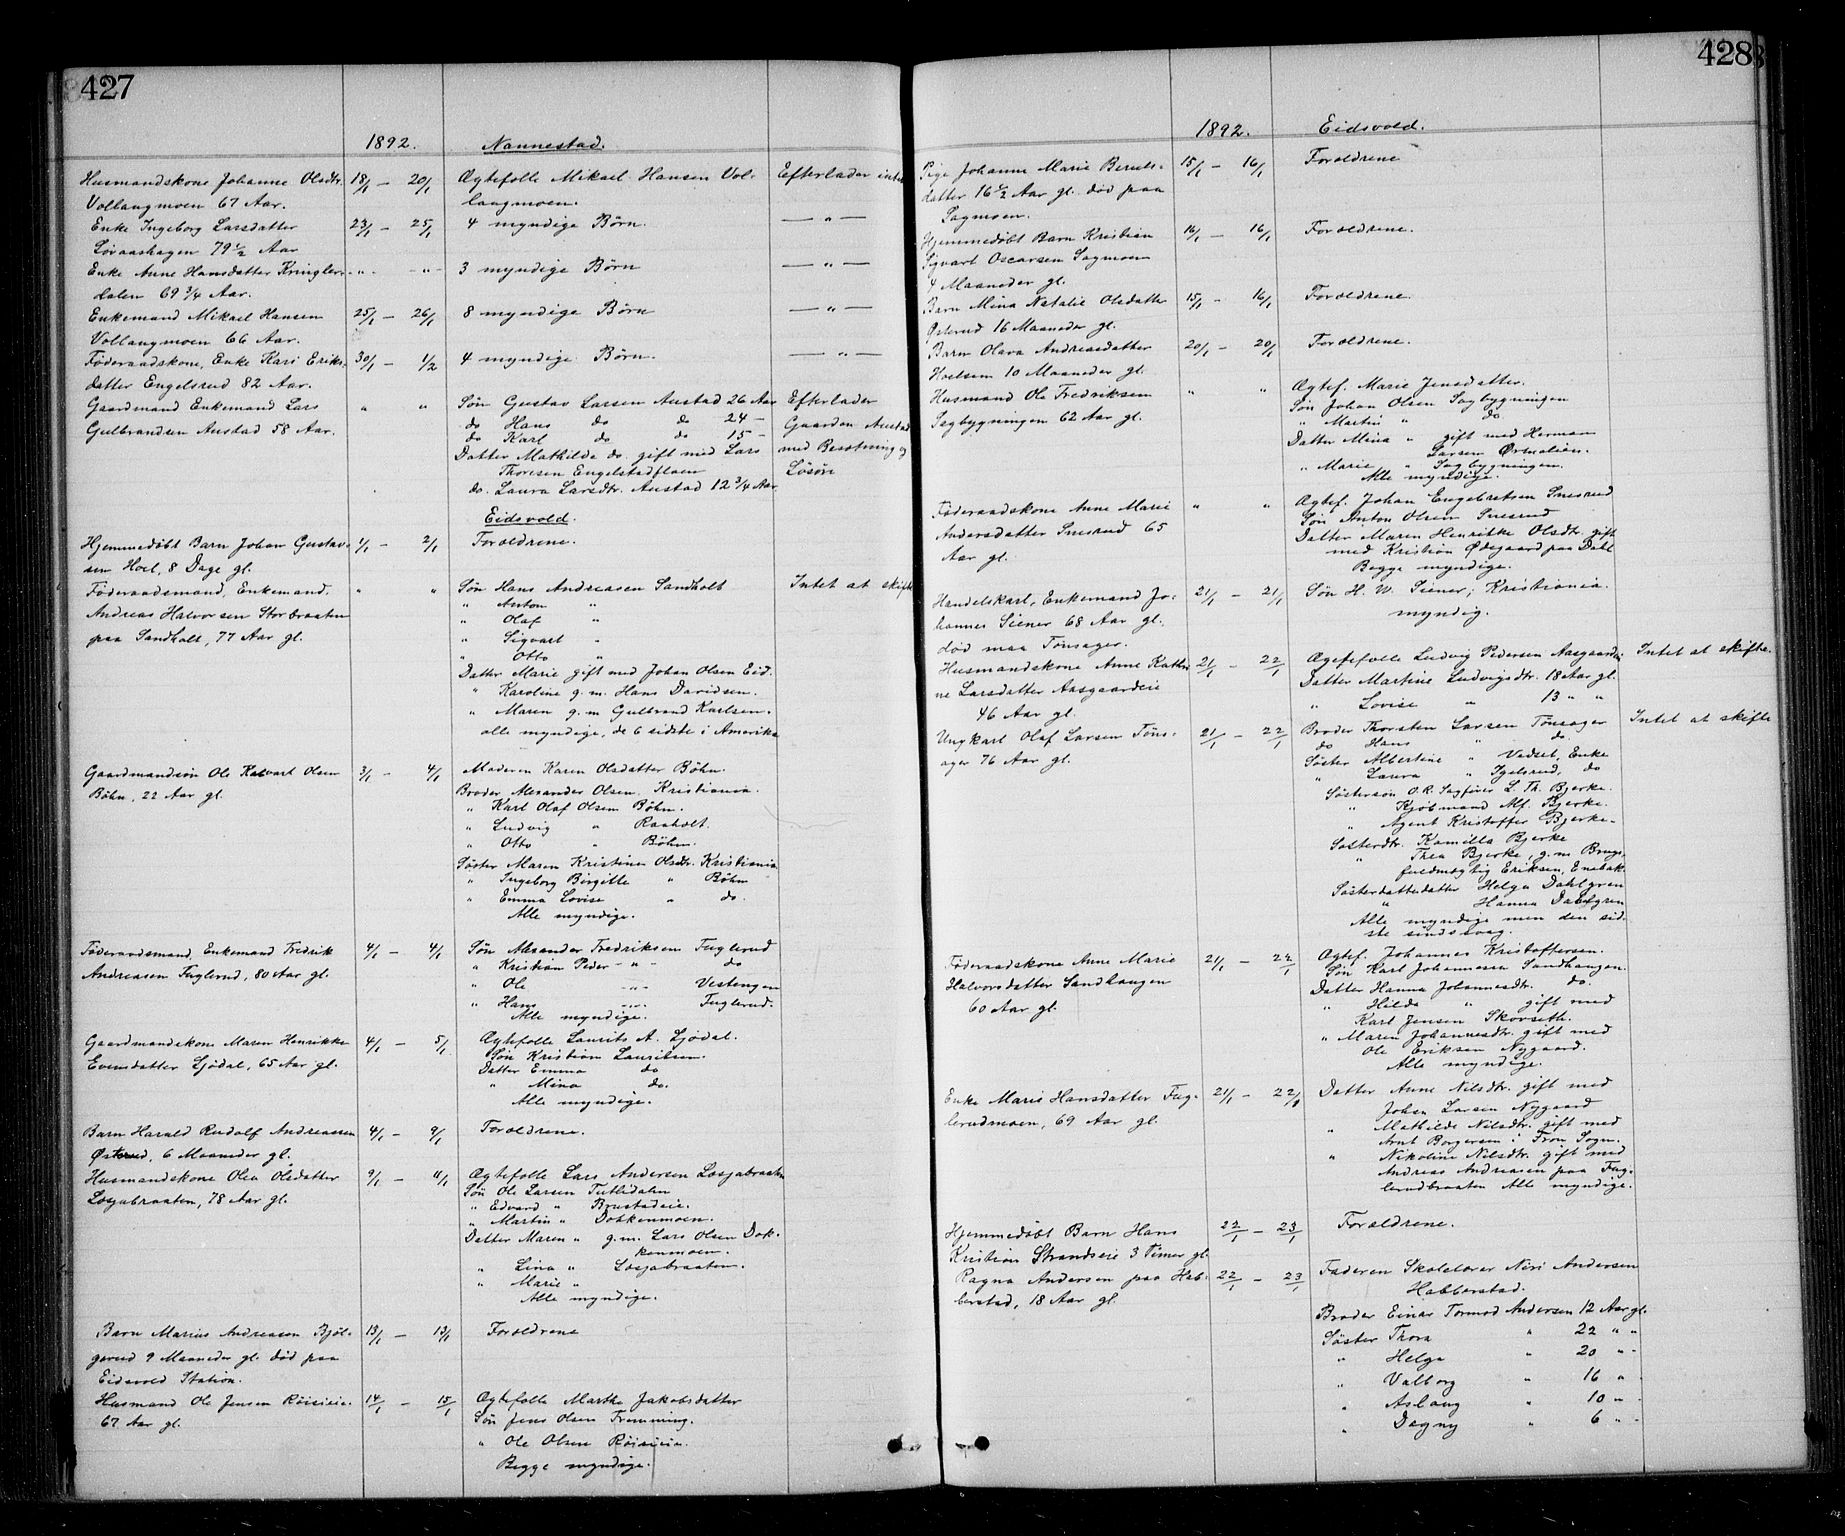 427
1892. Nannestad.
Husmandskone Johanne Olsdtr. 18/1 — 20/1 Ægtefolle Mikael Hansen Vol- Efterlader intet
Vollangmoen 67 Aar. langmoen.
Enke Ingeborg Larsdatter 23/1 — 25/1 4 myndige Børn. — " —
Løvaashagen 79 1/2 Aar
Enke Anne Hansdatter Kringler- " — " 3 myndige Børn — " —
dalen 69 3/4 Aar.
Enkemand Mikael Hansen 25/1 — 26/1 8 myndige Børn — " —
Vollangmoen 66 Aar.
Føderaadskone, Enke Kari Eriks- 30/1 — 1/2 4 myndige Børn. — " —
datter Engelsrud 82 Aar.
Gaardmand Enkemand Lars " " Søn Gustav Larsen Austad 26 Aar Efterlader
Gulbrandsen Austad 58 Aar. do Hans do do 24 — Gaarden Austad
do Karl do do 15 — med Besætning og
Datter Mathilde do. gift med Lars Løsøre
Thoresen Engelstadflaen
do. Laura Larsdtr. Austad 12 3/4 Aar
Eidsvold.
Hjemmedøbt Barn Johan Gustav- 1/1 — 2/1 Forældrene.
sen Hoel, 8 Dage gl.
Føderaadsmand, Enkemand. " " Søn Hans Andreasen Sandholt Intet at skifte
Andreas Halvorsen Storbraaten " Anton "
paa Sandholt, 77 Aar gl. " Olaf "
" Sigvart "
" Otto "
Datter Marie gift med Johan Olsen Eid.
" Karoline g. m. Hans Davidsen.
" Maren g. m Gulbrand Karlsen.
alle myndige, de 6 sidste i Amerika
Gaardmandsøn Ole Kalvart Olsen 3/1 — 4/1 Moderen Karen Olsdatter Bøhn.
Bøhn, 22 Aar gl. Broder Alexander Olsen, Kristiania.
" Karl Olaf Olsen Bøhn.
" Ludvig " Raaholt.
" Otto " Bøhn.
Søster Maren Kristine Olsdtr. Kristiania
" Ingeborg Birgitte " Bøhn
" Emma Lovise " do.
Alle myndige.
Føderaadsmand, Enkemand Fredrik 4/1 — 4/1 Søn Alexander Fredriksen Fuglerud
Andreasen Fuglerud, 80 Aar gl. " Kristian Peder — " — do
" Ole — " — Vestengen
" Hans — " — Fuglerud.
Alle myndige.
Gaardmandskone Maren Henrikke 4/1 — 5/1 Ægtefolle Laurits A. Ljødal.
Evensdatter Ljødal, 65 Aar gl. Søn Kristian Lauritsen.
Datter Emma do
" Mina do.
Alle myndige.
Barn Harald Rudolf Andreassen 4/1 — 9/1 Forældrene.
Østerud, 6 Maaneder gl.
Husmandskone Olea Olsdatter 9/1 — 11/1 Ægtefolle Lars Andersen Losjabraaten
Losjabraaten, 78 Aar gl. Søn Ole Larsen Tutlidalen
" Edvard " Brustadeie.
" Martin " Dokkenmoen.
Datter Maren " g.m. Lars Olsen Dok-
kenmoen.
" Lina " Losjabraaten.
" Marie "
Alle myndige.
Barn Marius Andreasen Bjøl- 13/1 — 13/1 Forældrene
gerud 9 Maaneder gl. død paa
Eidsvold Station.
Husmand Ole Jensen Røiseie. 14/1 — 15/1 Ægtefolle Marthe Jakobsdatter
67 Aar gl. Søn Jens Olsen Fremming.
" Ole Olsen Røiseie.
Begge myndige.
428
1892. Eidsvold.
Pige Johanne Marie Beruls- 15/1 — 16/1 Forældrene
datter 16 1/2 Aar gl. død paa
Sagmoen.
Hjemmedøbt Barn Kristian 16/1 — 16/1 Forældrene.
Sigvart Oscarsen Sagmoen
4 Maaneder gl.
Barn Mina Natalie Olsdatter 15/1 — 16/1 Forældrene.
Østerud 16 Maaneder gl.
Barn Olava Andreasdatter 20/1 — 20/1 Forældrene.
Hoelsen 10 Maaneder gl.
Husmand Ole Fredriksen " " Ægtef. Marie Jensdatter.
Sagbygningen 62 Aar gl. Søn Johan Olsen Sagbygningen
" Martin " do
Datter Mina " gift med Herman
Larsen Ørmelien.
" Marie " Sagbygningen.
Alle myndige.
Føderaadskone Anne Marie " " Ægtef. Johan Engebretsen Snesrud
Andersdatter Snesrud 65 Søn Anton Olsen Snesrud
Aar gl. Datter Maren Henrikke Olsdtr. gift
med Kristian Ødegaard paa Dahl
Begge myndige.
Handelskarl, Enkemand Jo- 21/1 — 21/1 Søn H. W. Siener; Kristiania.
hannes Siener 68 Aar gl. myndig.
død maa Tønsager.
Husmandskone Anne Kathri- 21/1 — 22/1 Ægtefolle Ludvig Pedersen Aasgaardeie Intet at skifte.
ne Larsdatter Aasgaardeie Datter Martine Ludvigsdtr. 18 Aar gl.
46 Aar gl. " Lovise " 13 " "
Ungkarl Olaf Larsen Tøns- 21/1 — 22/1 Broder Thorsten Larsen Tønsager Intet at skifte
ager 76 Aar gl. do Hans " do.
Søster Albertine " Vedset, Enke
" Laura " Igelsrud, do
Søstersøn O.R. Sagfører L. Th. Bjerke.
" Kjøbmand Alf. Bjerke.
" Agent Kristoffer Bjerke.
Søsterdtr. Kamilla Bjerke
" Thea Bjerke, g.m. Brugs-
fuldmægtig Eriksen, Enebak.
Søsterdatterdatter Helga Dahlgren
" Hanna Dahlgren
Alle myndige men den sid-
ste sindssvag.
Føderaadskone Anne Marie 21/1 — 22/1 Ægtef. Johannes Kristoffersen.
Halvorsdatter Sandhaugen Søn Karl Johannesen Sandhaugen.
60 Aar gl. Datter Hanna Johannesdtr. do.
" Hilda " gift med
Karl Jensen Skovseth.
" Maren Johannesdtr. gift med
Ole Eriksen Nygaard.
Alle myndige.
Enke Marie Hansdatter Fug- 21/1 — 22/1 Datter Anne Nilsdtr. gift med
lerudmoen, 69 Aar gl. Johan Larsen Nygaard
" Mathilde Nilsdtr. gift med
Arnt Borgersen i Tron Sogn.
" Nikoline Nilsdtr. gift med
Andreas Andreasen paa Fug-
lerudbraaten Alle myndige.
Hjemmedøbt Barn Hans 22/1 — 23/1 Forældrene.
Kristian Strandseie 3 Timer gl.
Ragna Andersen paa Hab- 22/1 — 23/1 Faderen Skolelærer Niri Andersen
berstad, 18 Aar gl. Habberstad.
Broder Einar Tormod Andersen 12 Aar gl.
Søster Thora " 22 " "
" Helga " 20 " "
" Valborg " 16 " "
" Aslaug " 10 " "
" Dagny " 6 " "